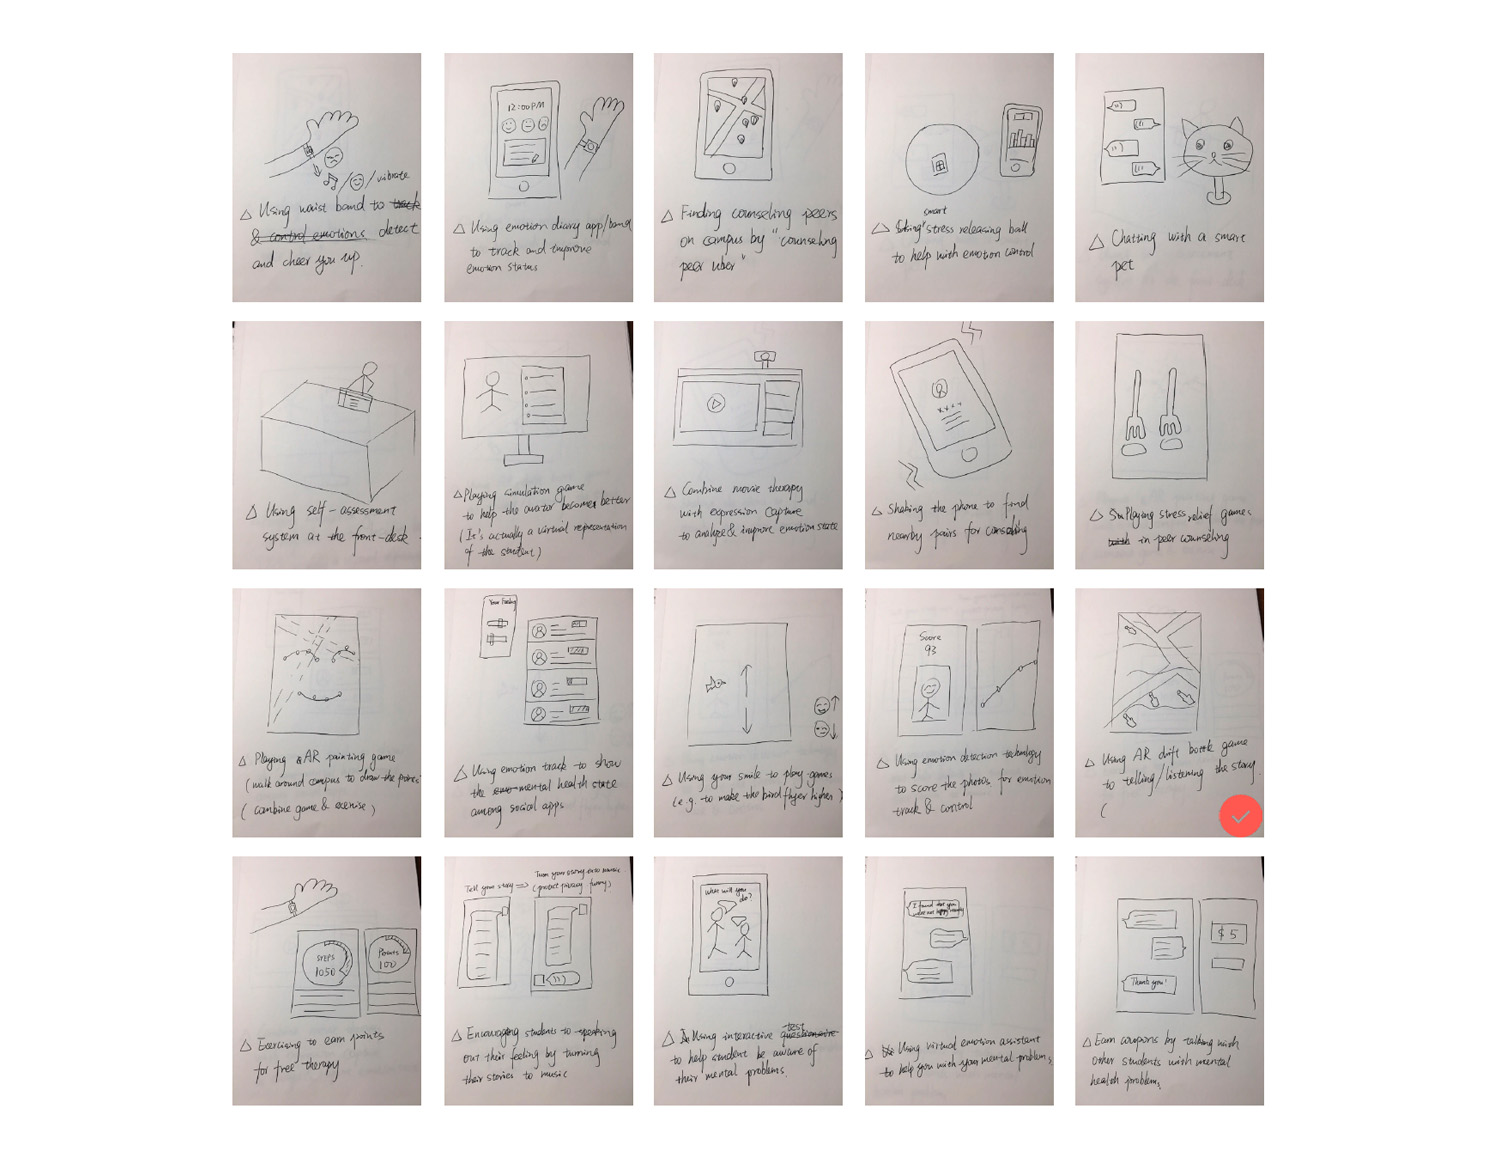 vibrate
△ Using waist band to track
& control emotions detect
and cheer you up.
12:00PM
△ Using emotion diary app/band
to track and improve
emotion status
△ Finding counseling peers
on campus by "counseling
peer uber"
smart
△ Using stress releasing ball
to help with emotion control
△ Chatting with a smart
pet
△ Using self-assessment
system at the front-desk.
△ Playing simulation game
to help the avatar become better
(It's actually a virtual representation
of the student)
△ Combine movie therapy
with expression capture
to analyze & improve emotion state
△ Shaking the phone to find
nearby pairs for consoling
△ Playing stress relief games
in peer counseling
△ Playing AR painting game
(walk around campus to draw the points)
(combine game & exercise)
Your Feeling
△ Using emotion track to show
the emo mental health state
among social apps
△ Using your smile to play games
(e.g. to make the bird flyer higher)
Score
93
△ Using emotion detection technology
to score the photos for emotion
track & control
△ Using AR drift bottle game
to telling/listening the story.
(
STEPS
1050
Points
100
△ Exercising to earn points
for free therapy
Tell your story ⇒
Turn your story into music
(protect privacy funny)
△ Encouraging students to speaking
out their feeling by turning
their stories to music
What will you
do?
test
△ Using interactive questionnaire
to help student be aware of
their mental problems.
I found that you
were not happy
△ Using virtual emotion assistant
to help you with your mental problems
$5
Thank you!
△ Earn coupons by talking with
other students with mental
health problems